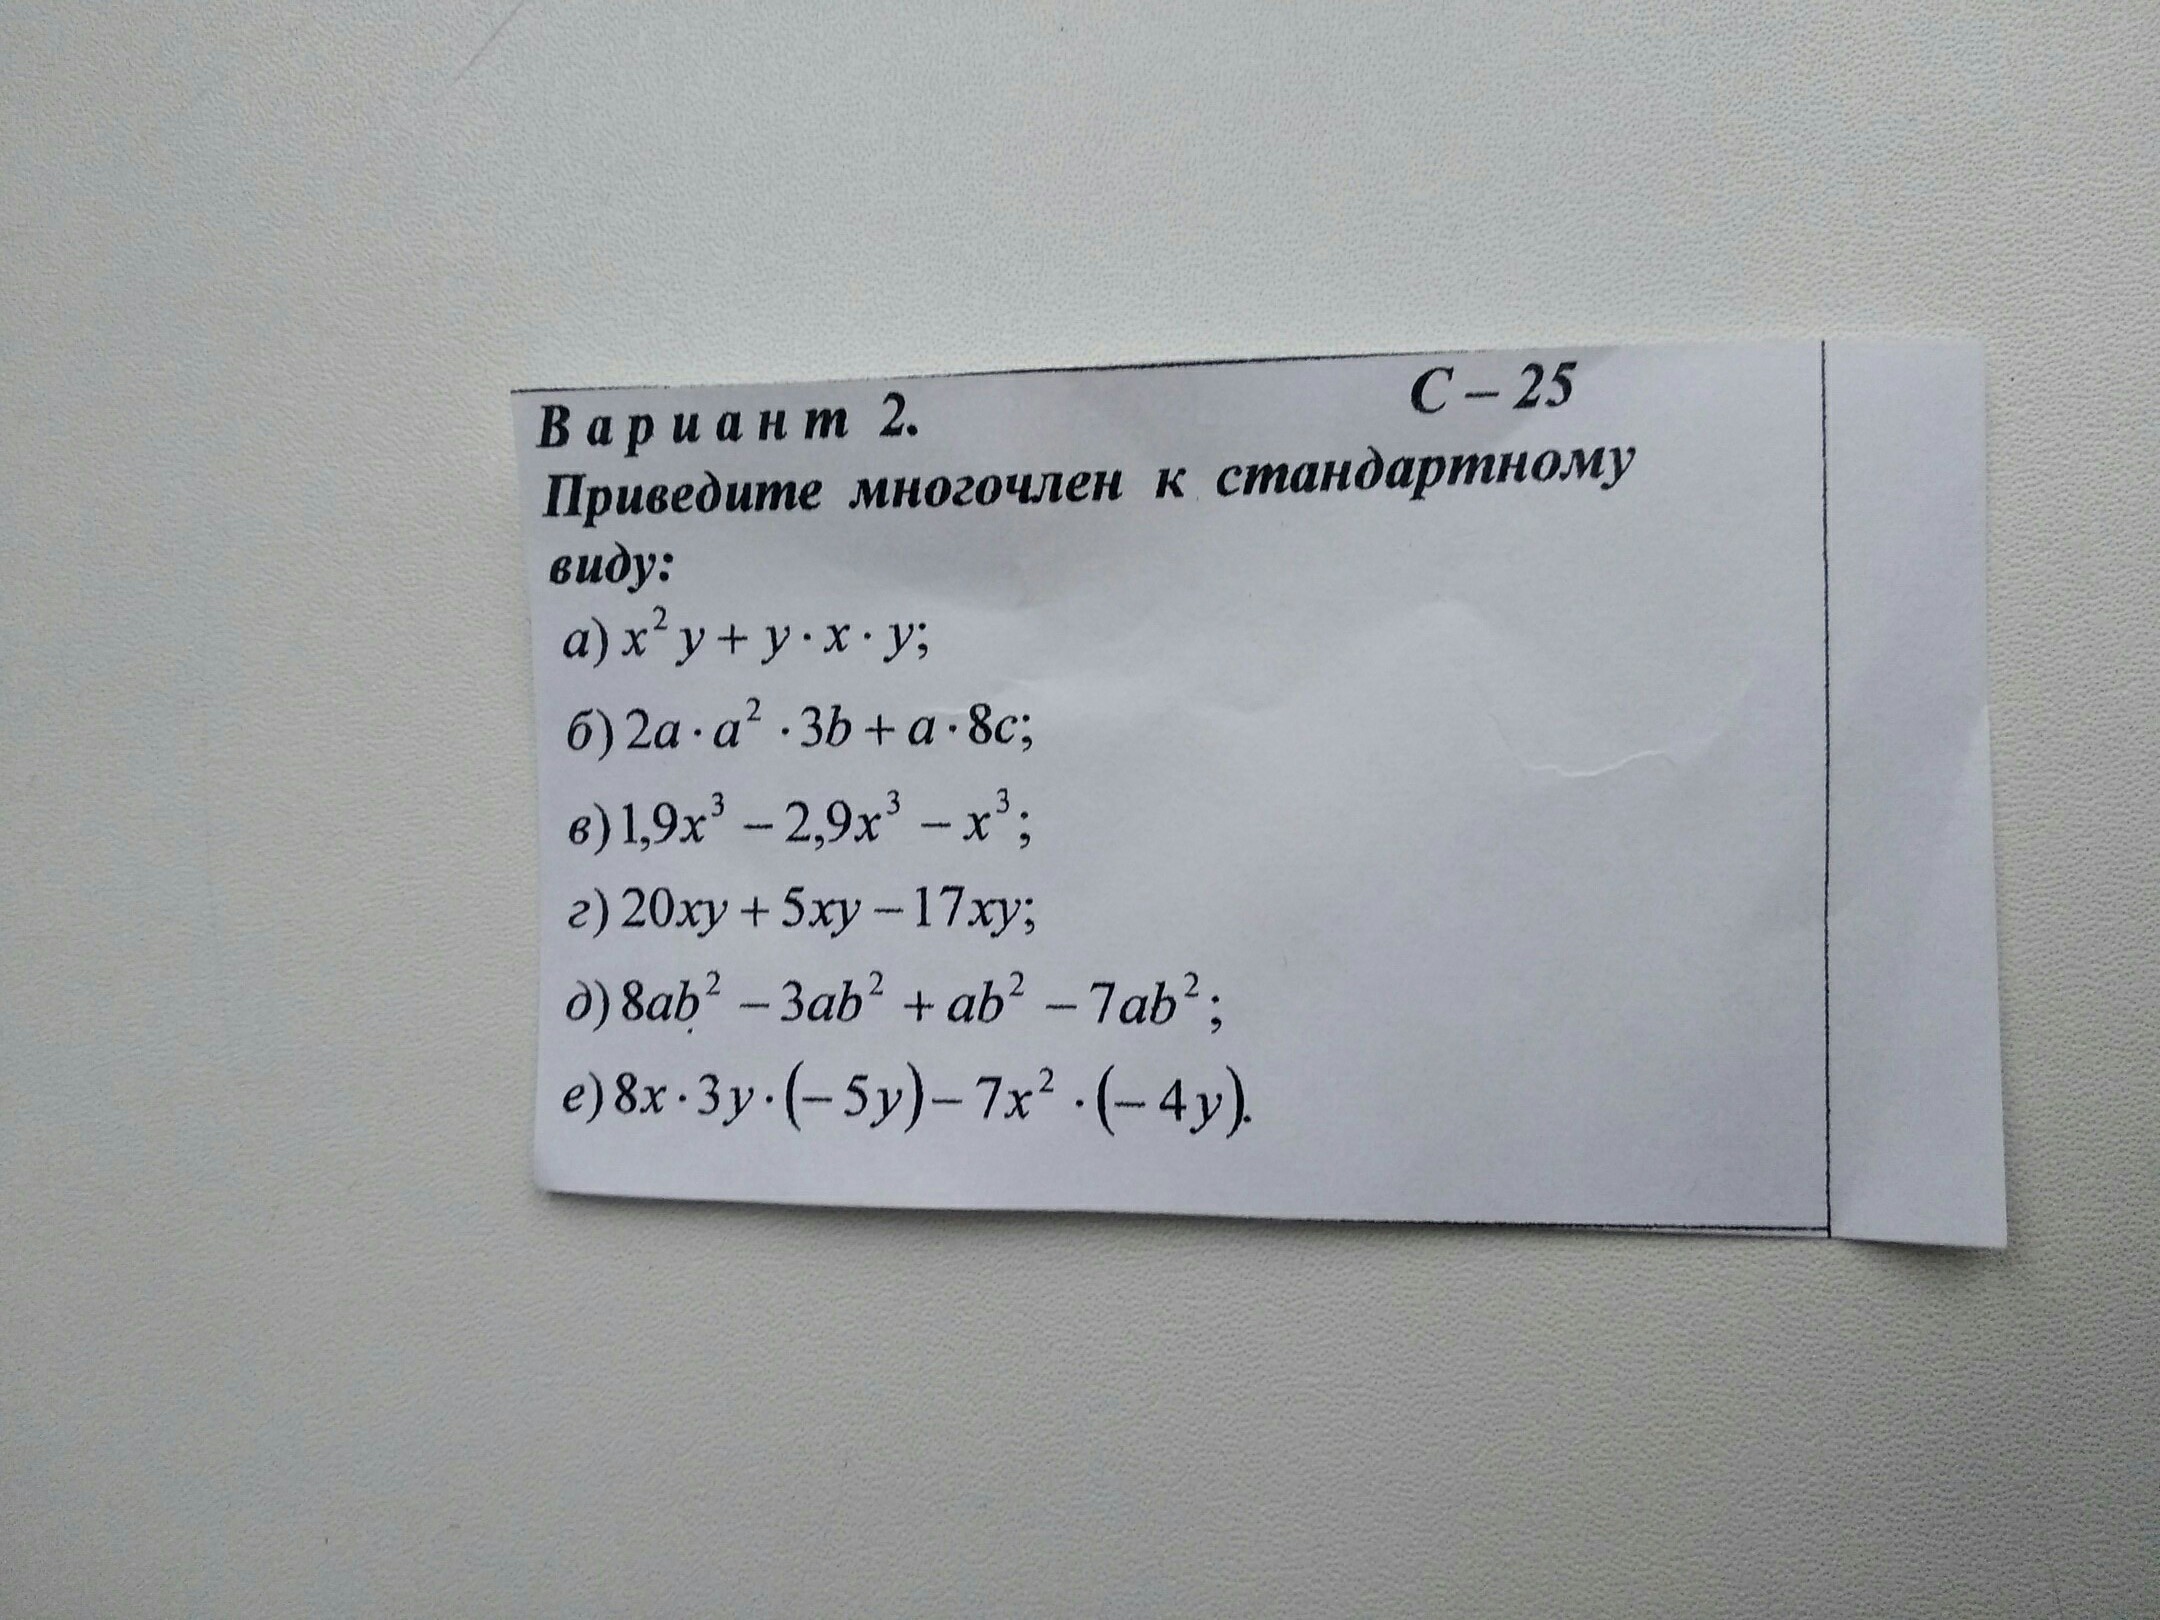 Вариант 2. С – 25
Приведите многочлен к стандартному
виду:
а) x²y + y · x · y;
б) 2a · a² · 3b + a · 8c;
в) 1,9x³ – 2,9x³ – x³;
г) 20xy + 5xy – 17xy;
д) 8ab² – 3ab² + ab² – 7ab²;
е) 8x · 3y · (– 5y) – 7x² · (– 4y).